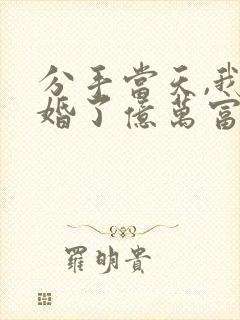 分手當天,我
婚了億萬富
羅明貴